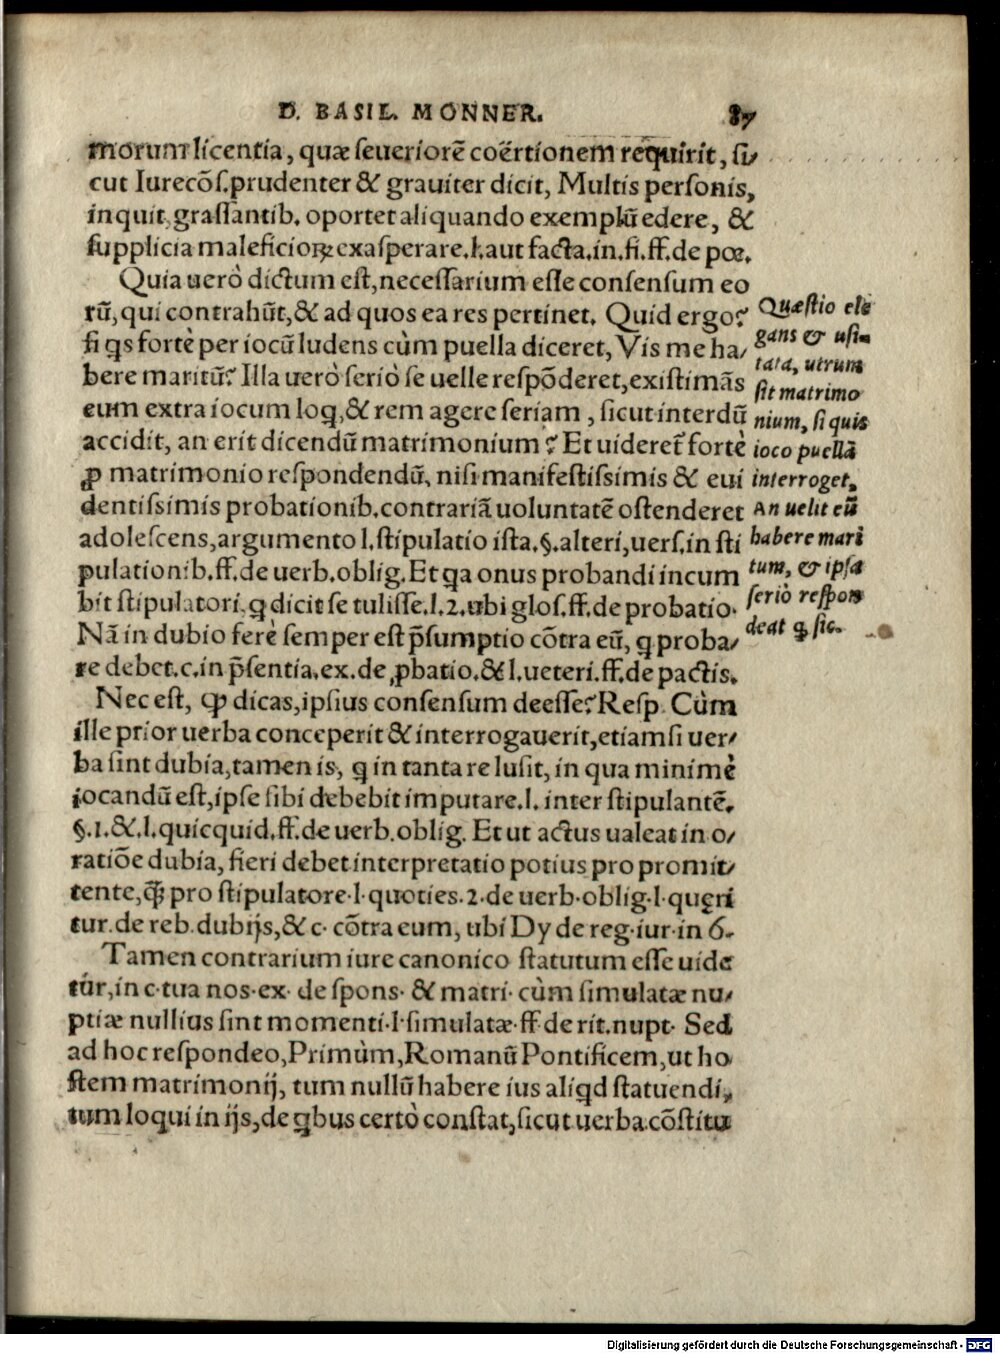 D. BASIL. MONNER. 87
morum licentia, quæ seueriorē coërtionem requirit, si⸗
cut Iurecōs. prudenter & grauiter dicit, Multis personis,
inquit, grassantib. oportet aliquando exemplū edere, &
supplicia maleficioꝝ exasperare. l. aut facta. in. fi. ff. de pœ.
Quia uerò dictum est, necessarium esse consensum eo
rū, qui contrahūt, & ad quos ea res pertinet. Quid ergo?
si qs fortè per iocū ludens cùm puella diceret, Vis me ha⸗
bere maritū? Illa uerò seriò se uelle respōderet, existimās
eum extra iocum loq, & rem agere seriam, sicut interdū
accidit, an erit dicendū matrimonium? Et uideret̃ fortè
ꝓ matrimonio respondendū, nisi manifestissimis & eui
dentissimis probationib. contrariā uoluntatē ostenderet
adolescens, argumento l. stipulatio ista. §. alteri, uers. in sti
pulationib. ff. de uerb. oblig. Et qa onus probandi incum
bit stipulatori, q dicit se tulisse. l. 2. ubi glos. ff. de probatio.
Nā in dubio ferè semper est p̄sumptio cōtra eū, q proba⸗
re debet. c. in p̄sentia. ex. de ꝓbatio. & l. ueteri. ff. de pactis.
Quæstio ele
gans & usi⸗
tata, utrum
sit matrimo
nium, si quis
ioco puellā
interroget,
An uelit eū
habere mari
tum, & ipsa
seriò respon
deat q sic.
Nec est, ꝙ dicas, ipsius consensum deesse? Resp. Cùm
ille prior uerba conceperit & interrogauerit, etiamsi uer⸗
ba sint dubia, tamen is, q in tanta re lusit, in qua minimè
iocandū est, ipse sibi debebit imputare. l. inter stipulantē.
§. 1. & l. quicquid. ff. de uerb. oblig. Et ut actus ualeat in o⸗
ratiōe dubia, fieri debet interpretatio potius pro promit⸗
tente, q̄ꝫ pro stipulatore. l. quoties. 2. de uerb. oblig. l. quęri
tur. de reb. dubijs, & c. cōtra eum, ubi Dy de reg. iur. in 6.
Tamen contrarium iure canonico statutum esse uide
tur, in c. tua nos. ex. de spons. & matri. cùm simulatæ nu⸗
ptiæ nullius sint momenti. l. simulatæ. ff de rit. nupt. Sed
ad hoc respondeo, Primùm, Romanū Pontificem, ut ho
stem matrimonij, tum nullū habere ius aliqd statuendi,
tum loqui in ijs, de qbus certò constat, sicut uerba cōstitu
Digitalisierung gefördert durch die Deutsche Forschungsgemeinschaft - DFG